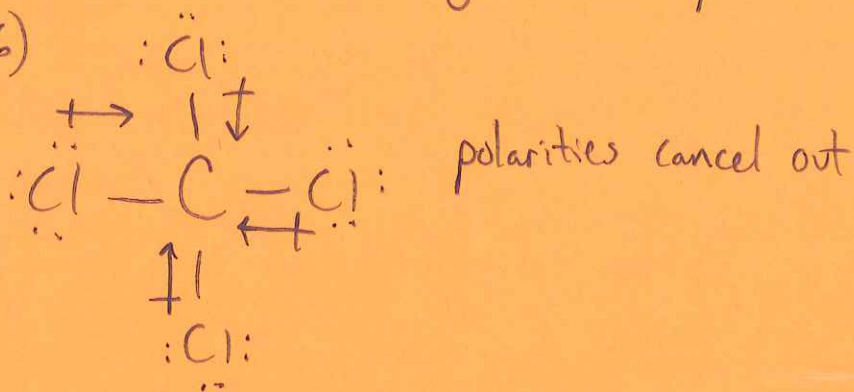 6)
:Cl:
:Cl — C — Cl: polarities cancel out
:Cl: